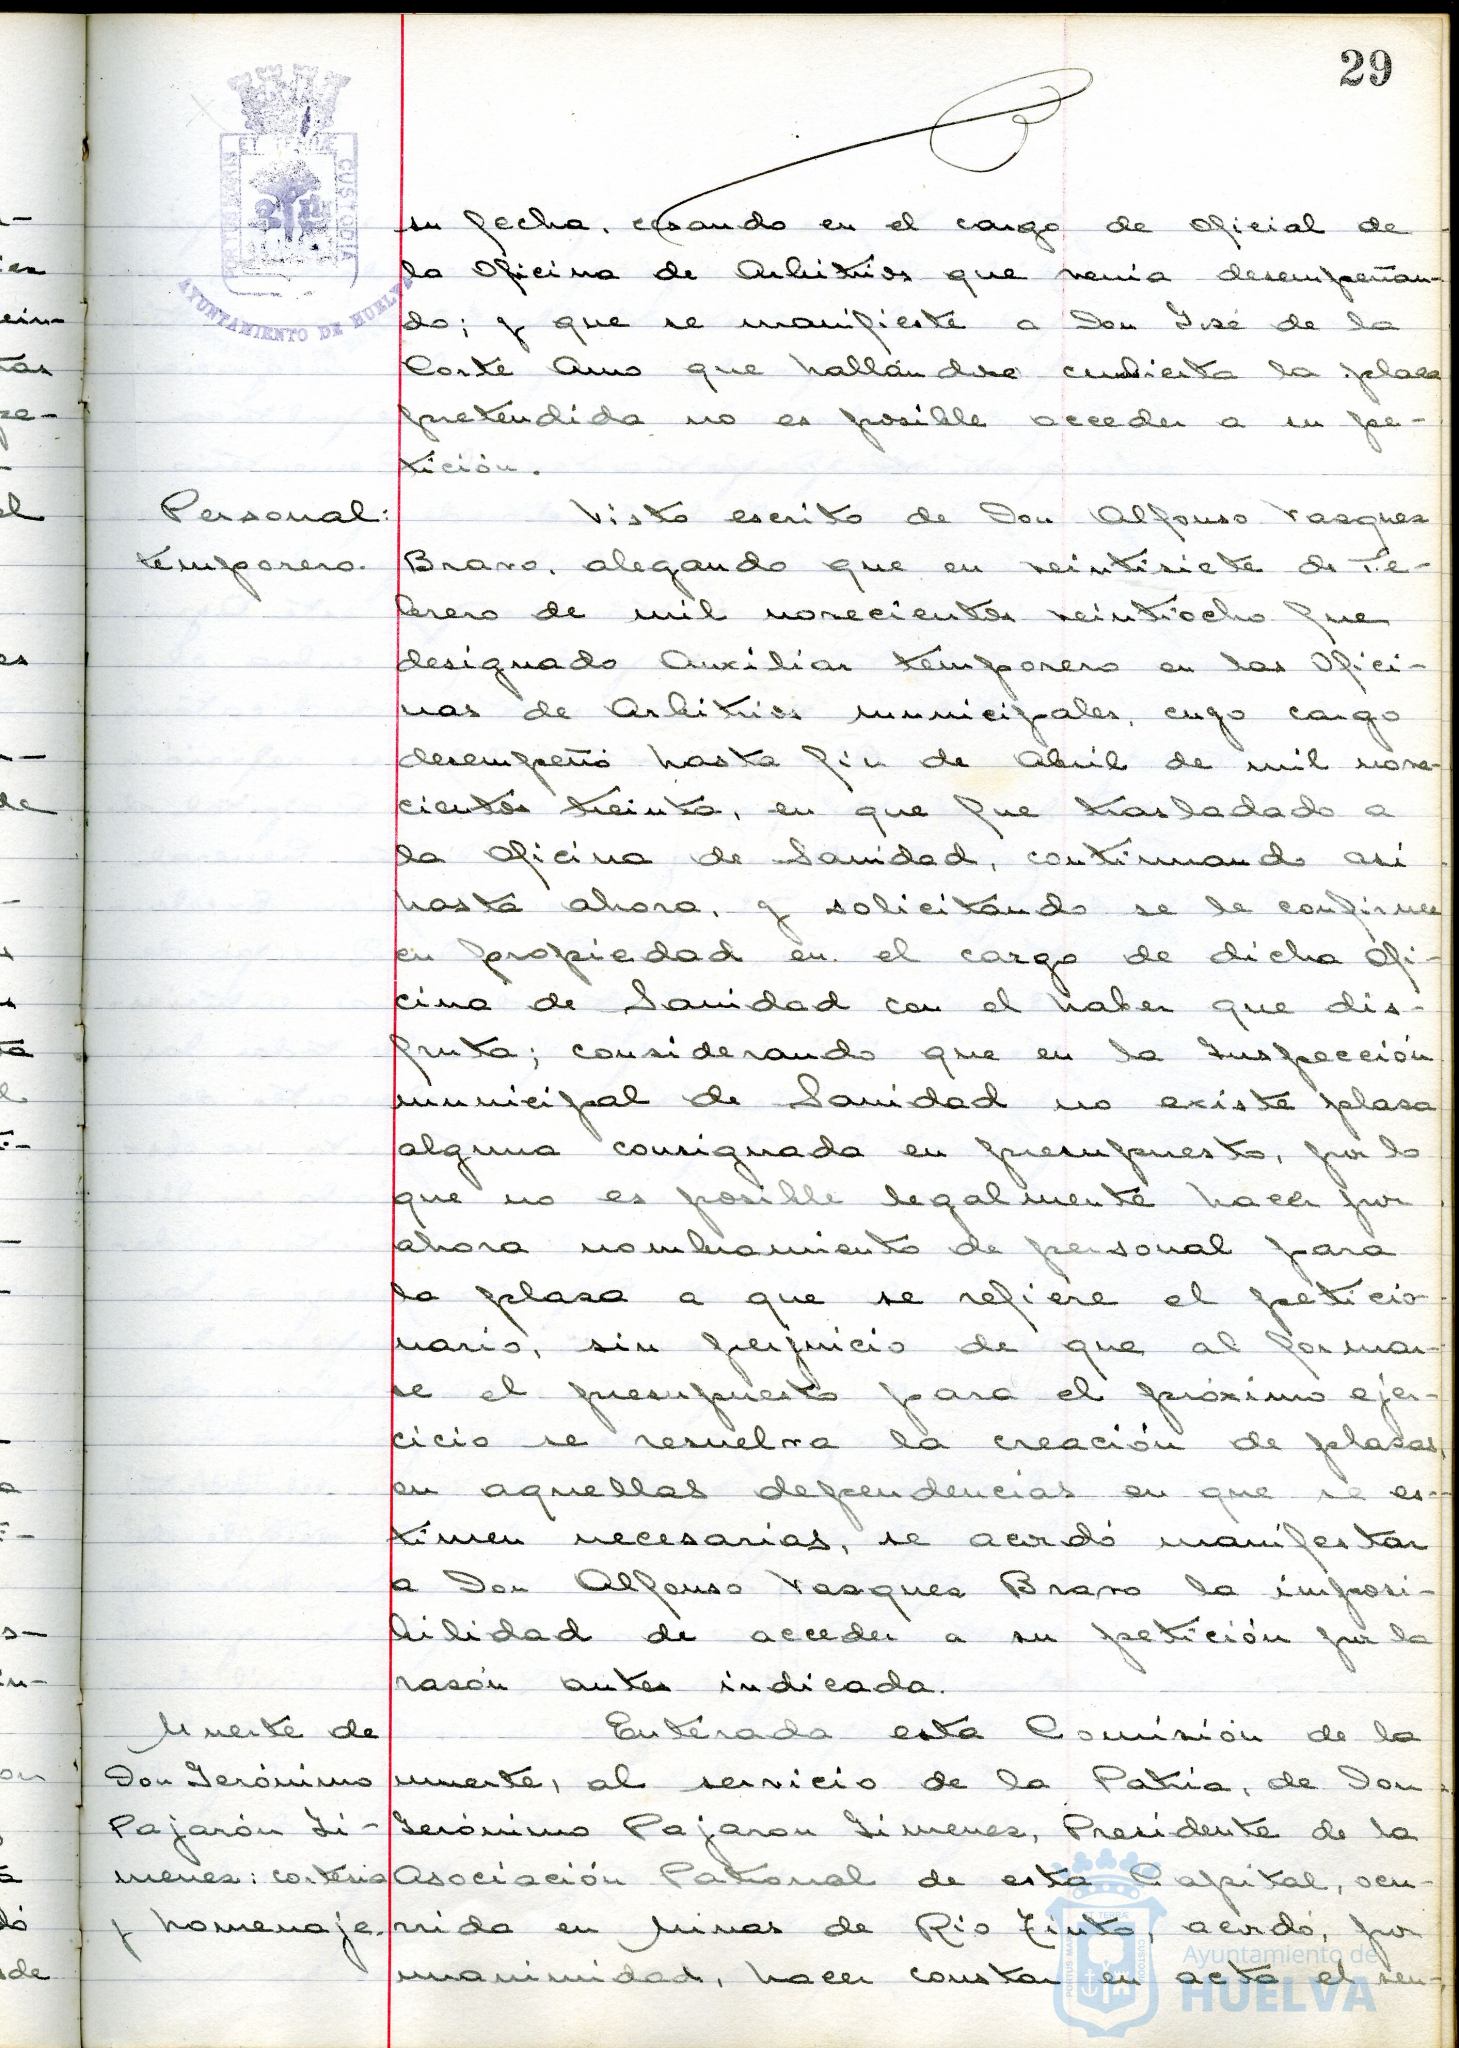 29
PORTUS MARIS ET TERRÆ CUSTODIA
AYUNTAMIENTO DE HUELVA
su fecha, cesando en el cargo de Oficial de
la Oficina de Arbitrios que venia desempeñan-
do; y que se manifieste a Don José de la
Corte Amo que hallándose cubierta la plaza
pretendida no es posible acceder a su pe-
tición.
Personal:
temporero.
Visto escrito de Don Alfonso Vazquez
Bravo, alegando que en veintisiete de Fe-
brero de mil novecientos veintiocho fue
designado Auxiliar temporero en las Ofici-
nas de Arbitrios municipales, cuyo cargo
desempeñó hasta fin de Abril de mil nove-
cientos treinta, en que fue trasladado a
la Oficina de Sanidad, continuando asi
hasta ahora, y solicitando se le confirme
en propiedad en el cargo de dicha Ofi-
cina de Sanidad con el haber que dis-
fruta; considerando que en la Inspección
municipal de Sanidad no existe plaza
alguna consignada en presupuesto, por lo
que no es posible legalmente hacer por
ahora nombramiento de personal para
la plaza a que se refiere el peticio-
nario, sin perjuicio de que al formar-
se el presupuesto para el próximo ejer-
cicio se resuelva la creación de plazas,
en aquellas dependencias en que se es-
timen necesarias, se acordó manifestar
a Don Alfonso Vazquez Bravo la imposi-
bilidad de acceder a su petición por la
razón antes indicada.
Muerte de
Don Gerónimo
Pajarón Ji-
menez: cortesia
y homenaje.
Enterada esta Comisión de la
muerte, al servicio de la Patria, de Don
Gerónimo Pajaron Jimenez, Presidente de la
Asociación Patronal de esta Capital, ocu-
rrida en Minas de Rio Tinto, acordó, por
unanimidad, hacer constar en acta el sen-
Ayuntamiento de
HUELVA